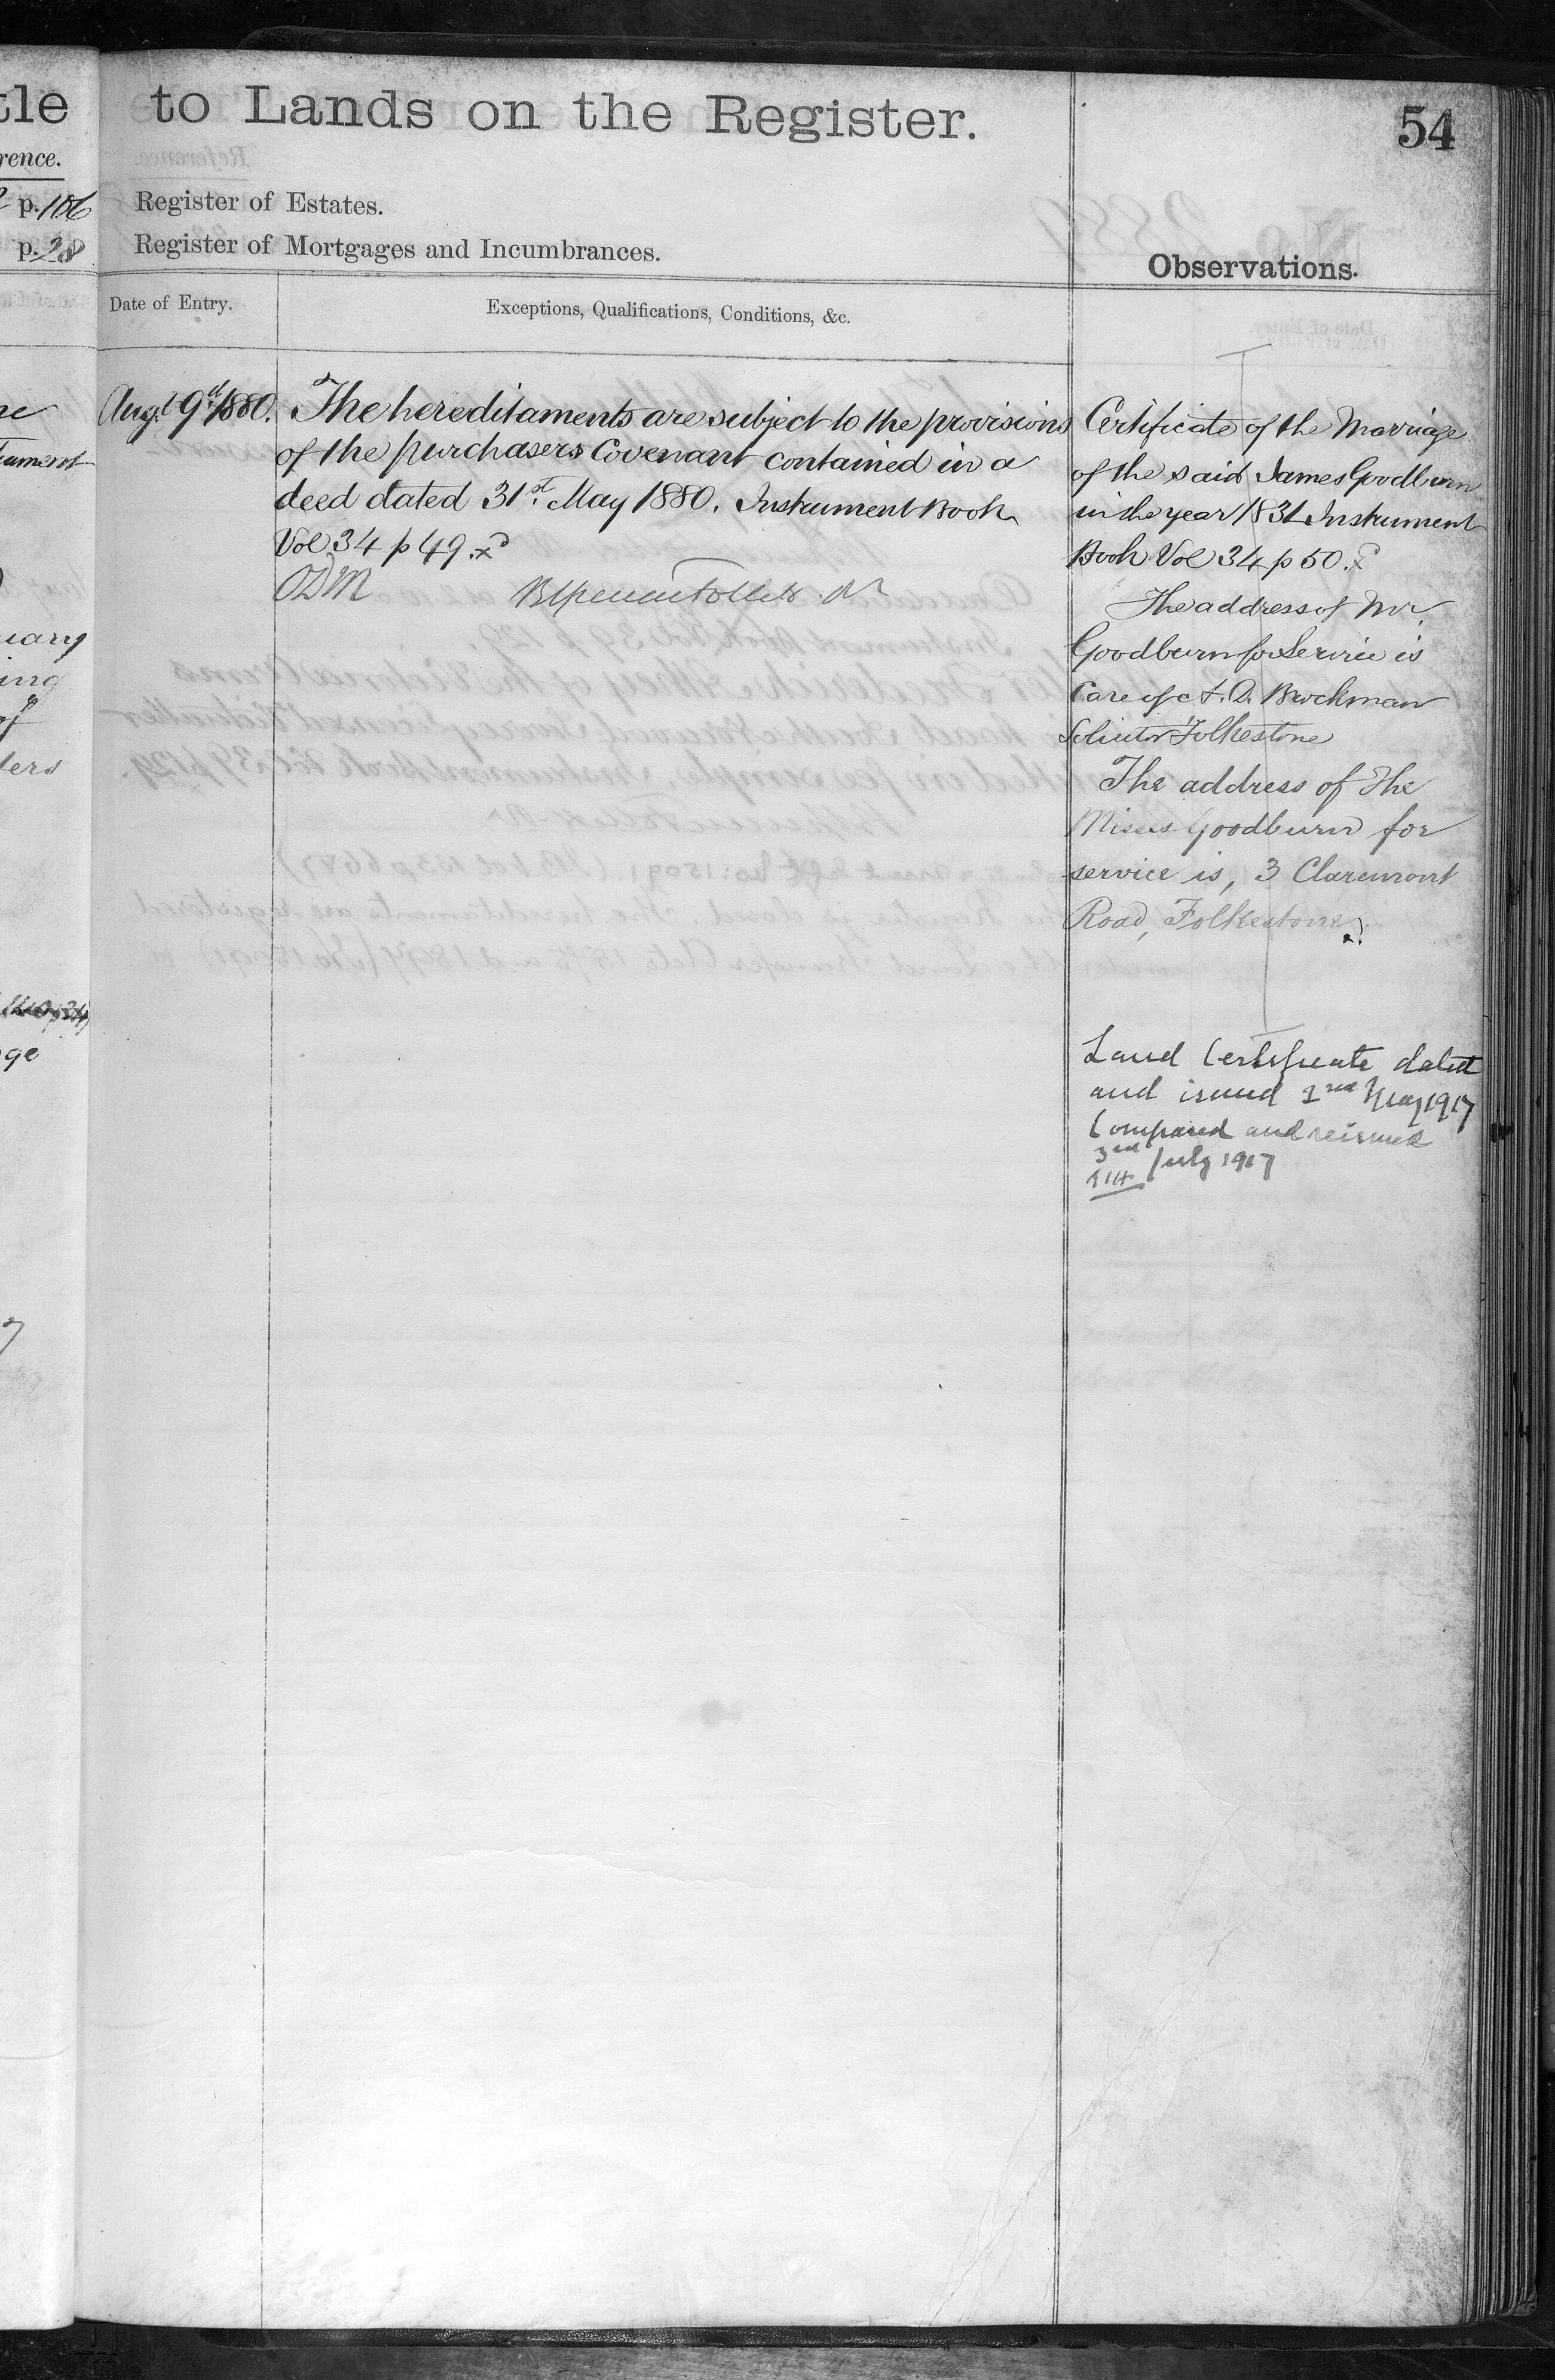 tle to Lands on the Register.
54
rence.
p. 106 Register of Estates.
p. 28 Register of Mortgages and Incumbrances.
Observations.
Date of Entry.
Exceptions, Qualifications, Conditions, &c.
Augt. 9th 1880.
The hereditaments are subject to the provisions
of the purchasers Covenant contained in a
deed dated 31st. May 1880. Instrument Book
Vol 34 p 49.
ODM
Certificate of the Marriage
of the said James Goodburn
in the year 1831 Instrument
Book Vol 34 p 50.
The address of Mr.
Goodburn for Service is
Care of A. D. Brockman
Solicitor Folkestone
The address of the
Misses Goodburn for
service is, 3 Claremont
Road, Folkestone.
Land Certificate dated
and issued 2nd May 1917
Compared and reissued
3rd July 1917
uary
ing
of
ders
ge